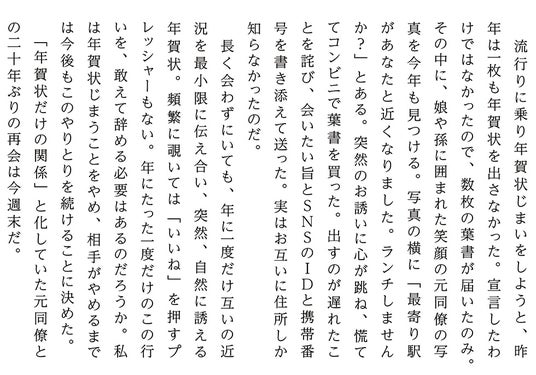 流行りに乗り年賀状じまいをしようと、昨
年は一枚も年賀状を出さなかった。宣言したわ
けではなかったので、数枚の葉書が届いたのみ。
その中に、娘や孫に囲まれた笑顔の元同僚の写
真を今年も見つける。写真の横に「最寄り駅
があなたと近くなりました。ランチしません
か？」とある。突然のお誘いに心が跳ね、慌て
てコンビニで葉書を買った。出すのが遅れたこ
とを詫び、会いたい旨とSNSのIDと携帯番
号を書き添えて送った。実はお互いに住所しか
知らなかったのだ。
長く会わずにいても、年に一度だけ互いの近
況を最小限に伝え合い、突然、自然に誘える
年賀状。頻繁に覗いては「いいね」を押すプ
レッシャーもない。年にたった一度だけのこの行
いを、敢えて辞める必要はあるのだろうか。私
は年賀状じまうことをやめ、相手がやめるまで
は今後もこのやりとりを続けることに決めた。
「年賀状だけの関係」と化していた元同僚と
の二十年ぶりの再会は今週末だ。